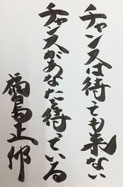 チャンスは待っても来ない
チャンスがあなたを待っている